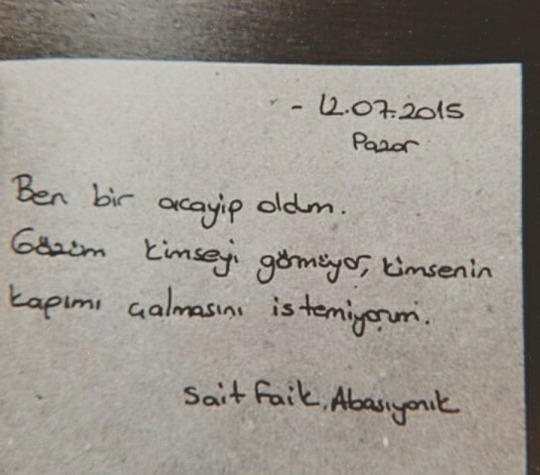 - 12.07.2015
Pazar
Ben bir acayip oldum.
Gözüm kimseyi görmüyor, kimsenin
kapımı çalmasını istemiyorum.
Sait Faik Abasıyanık